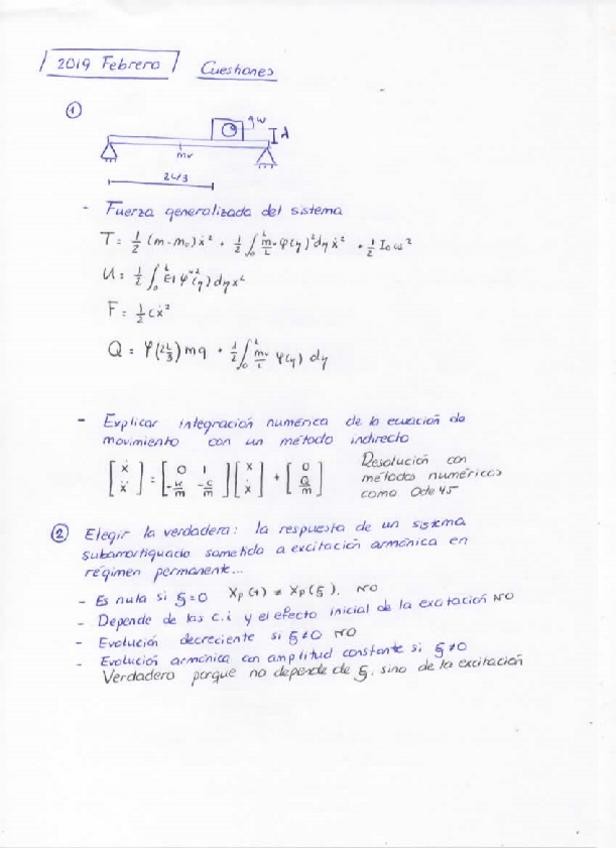 2019 Febrero Cuestiones
①
qw
A
mv
2L/3
- Fuerza generalizada del sistema
T = 1/2 (m-m₀)ẋ² + 1/2 ∫₀ᴸ m/L · φ(y)² dy ẋ² + 1/2 I₀ω²
U = 1/2 ∫₀ᴸ EI φ''²(y) dy x²
F = 1/2 cẋ²
Q = φ(2L/3) mg + 1/2 ∫₀ᴸ mv/L φ(y) dy
- Explicar integración numérica de la ecuación de
movimiento con un método indirecto
[ẋ ẍ] = [0 1 -k/m -c/m] [x ẋ] + [0 Q/m]
Resolución con
métodos numéricos
como Ode 45
② Elegir la verdadera: la respuesta de un sistema
subamortiguado sometida a excitación armónica en
régimen permanente...
- Es nula si ξ=0 Xp(t) ≠ Xp(ξ). NO
- Depende de las c.i y el efecto inicial de la excitación NO
- Evolución decreciente si ξ≠0 NO
- Evolución armónica con amplitud constante si ξ≠0
Verdadero porque no depende de ξ, sino de la excitación